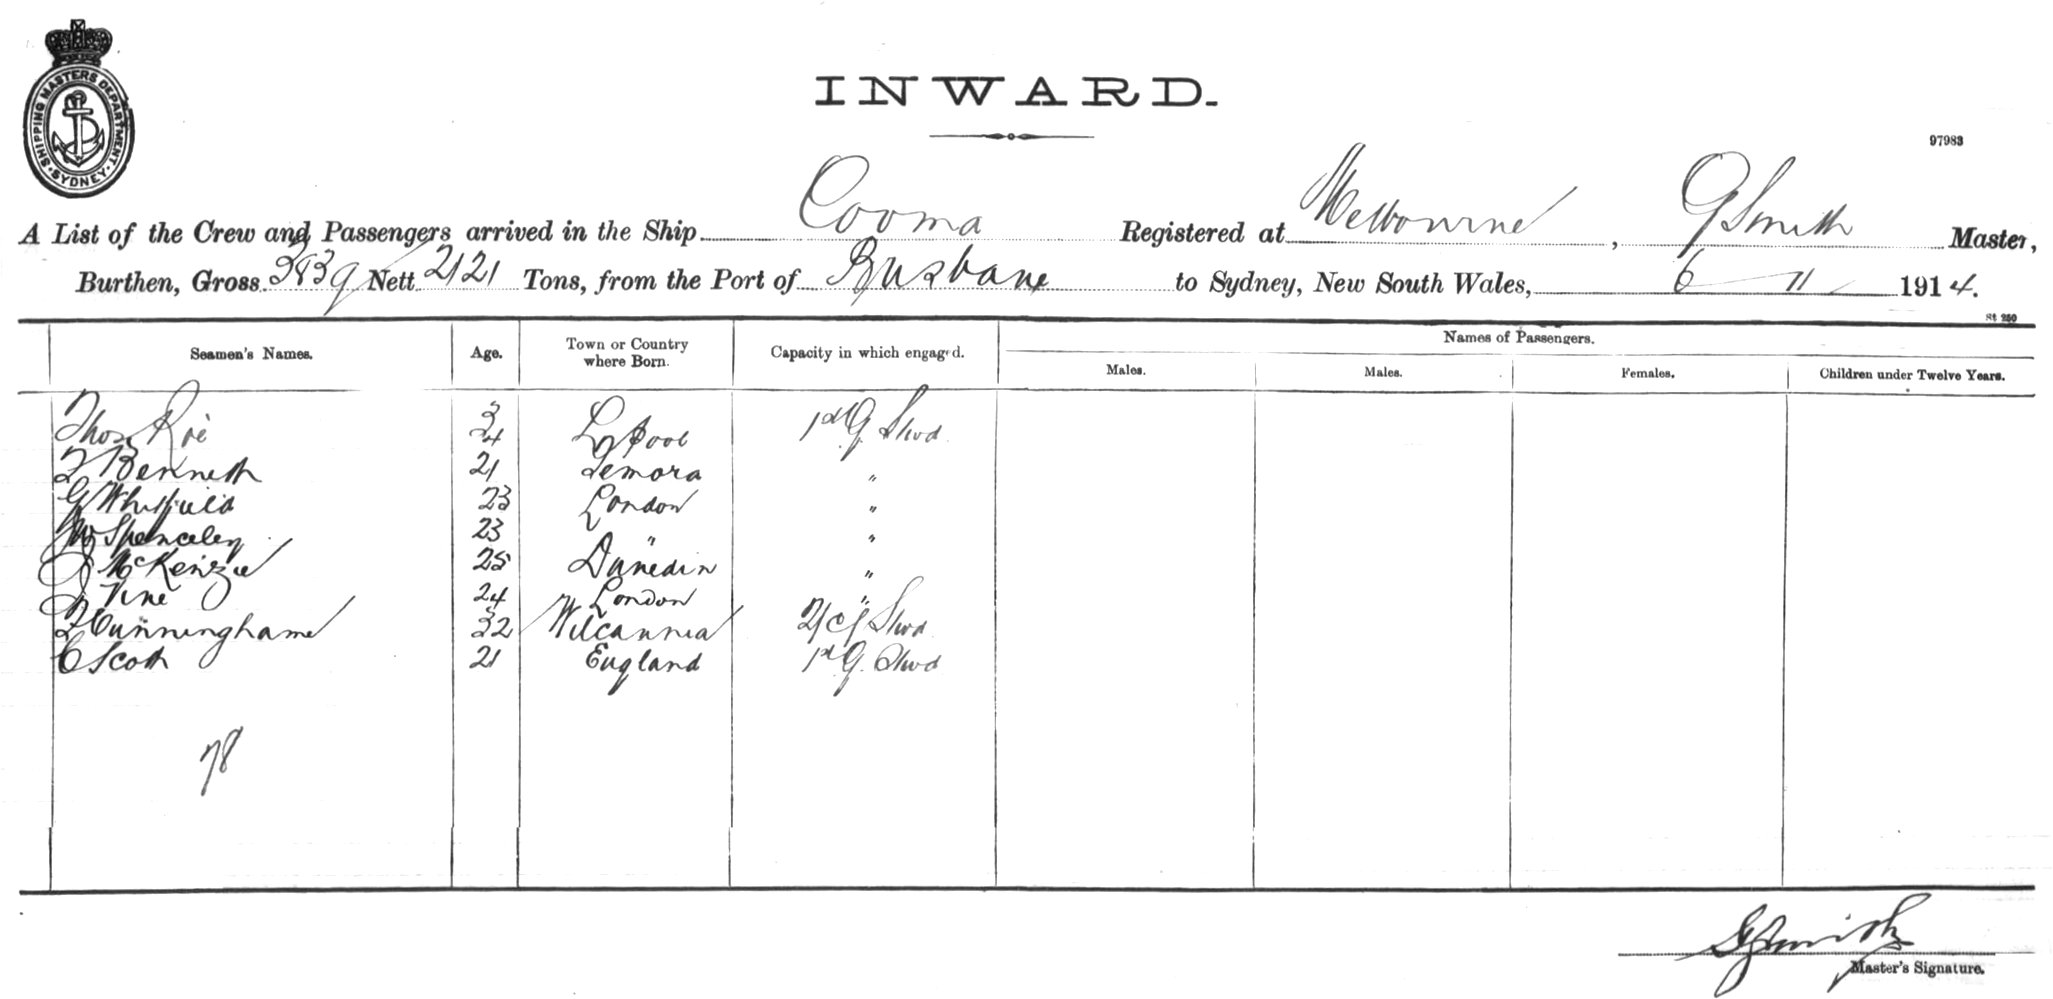 SHIPPING MASTERS DEPARTMENT. SYDNEY.
INWARD.
97983
A List of the Crew and Passengers arrived in the Ship Cooma Registered at Melbourne, G Smith Master,
Burthen, Gross 3839 Nett 2121 Tons, from the Port of Brisbane to Sydney, New South Wales, 6 11 1914.
St 250
Seamen's Names. Age. Town or Country where Born. Capacity in which engaged. Names of Passengers.
Males. Males. Females. Children under Twelve Years.
Thos Roe 34 L'pool 1st G. Stwd
Bennett 21 Temora "
G Whitfield 23 London "
W Spenceley 23 " "
J McKenzie 25 Dunedin "
J Vine 24 London "
Cunninghame 32 Wilcannia Stwd
C Scott 21 England 1st G. Stwd
78
G Smith
Master's Signature.